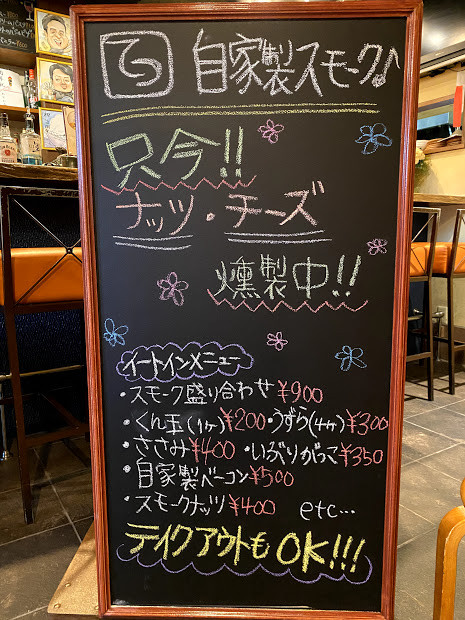 て 自家製スモーク♪
只今!!
ナッツ・チーズ
燻製中!!
イートインメニュー
・スモーク盛り合わせ ¥900
・くん玉(1ヶ)¥200・うずら(4ヶ)¥300
・ささみ¥400 ・いぶりがっこ¥350
・自家製ベーコン¥500
・スモークナッツ¥400 etc…
テイクアウトもOK!!!